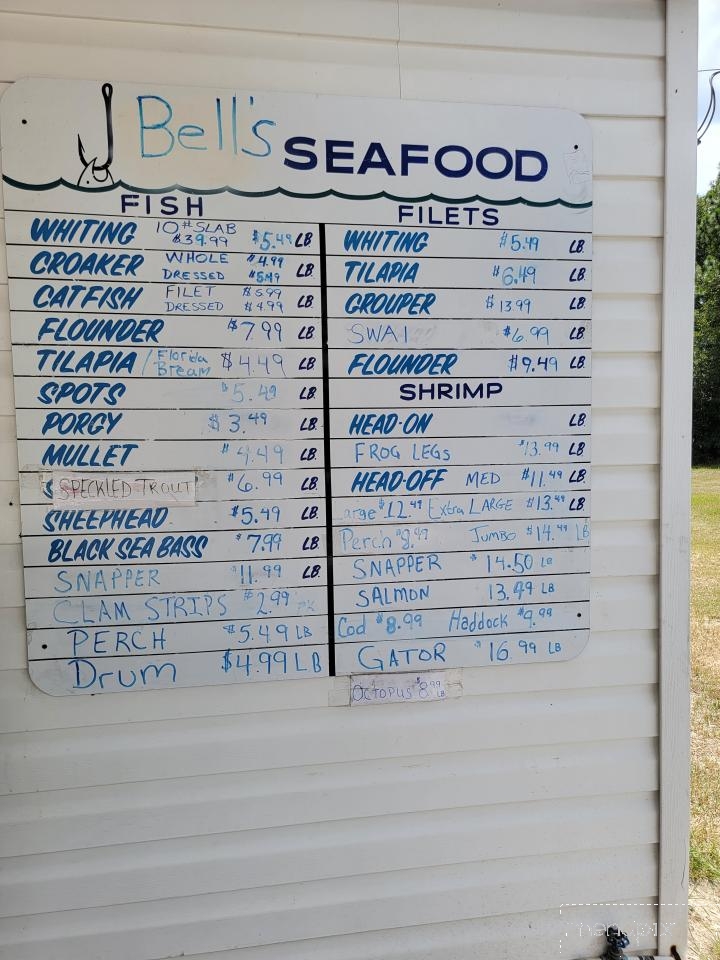 Bell's SEAFOOD
FISH
WHITING 10# SLAB $39.99 $5.49 LB.
CROAKER WHOLE $4.99 LB.
DRESSED $5.49
CATFISH FILET $6.99 LB.
DRESSED $4.99
FLOUNDER $7.99 LB.
TILAPIA / Florida Bream $4.49 LB.
SPOTS $5.49 LB.
PORGY $3.49 LB.
MULLET $4.49 LB.
SPECKLED TROUT $6.99 LB.
SHEEPHEAD $5.49 LB.
BLACK SEA BASS $7.99 LB.
SNAPPER $11.99 LB.
CLAM STRIPS $2.99 PK
PERCH $5.49 LB
Drum $4.99 LB
FILETS
WHITING $5.49 LB.
TILAPIA $6.49 LB.
GROUPER $13.99 LB.
SWAI $6.99 LB.
FLOUNDER $9.49 LB.
SHRIMP
HEAD-ON LB.
FROG LEGS $13.99 LB.
HEAD-OFF MED $11.49 LB.
arge $12.49 Extra LARGE $13.49 LB.
Perch $8.49 JUMBO $14.49 LB
SNAPPER $14.50 LB
SALMON 13.49 LB
Cod $8.99 Haddock $9.99
GATOR $16.99 LB
OCTOPUS $8.99 LB